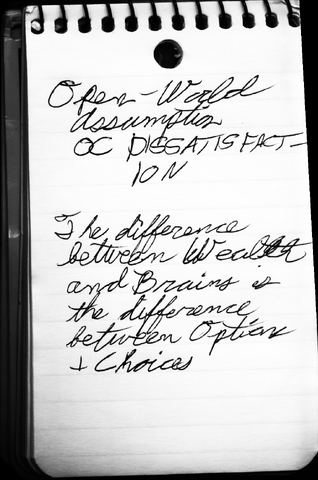 Open-World
Assumption
OC DISSATISFACT-
ION
The difference
between Wealth
and Brains is
the difference
between Options
+ Choices